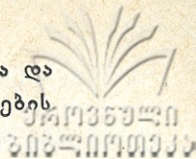 ა და
ების
ეროვნული
ბიბლიოთეკა